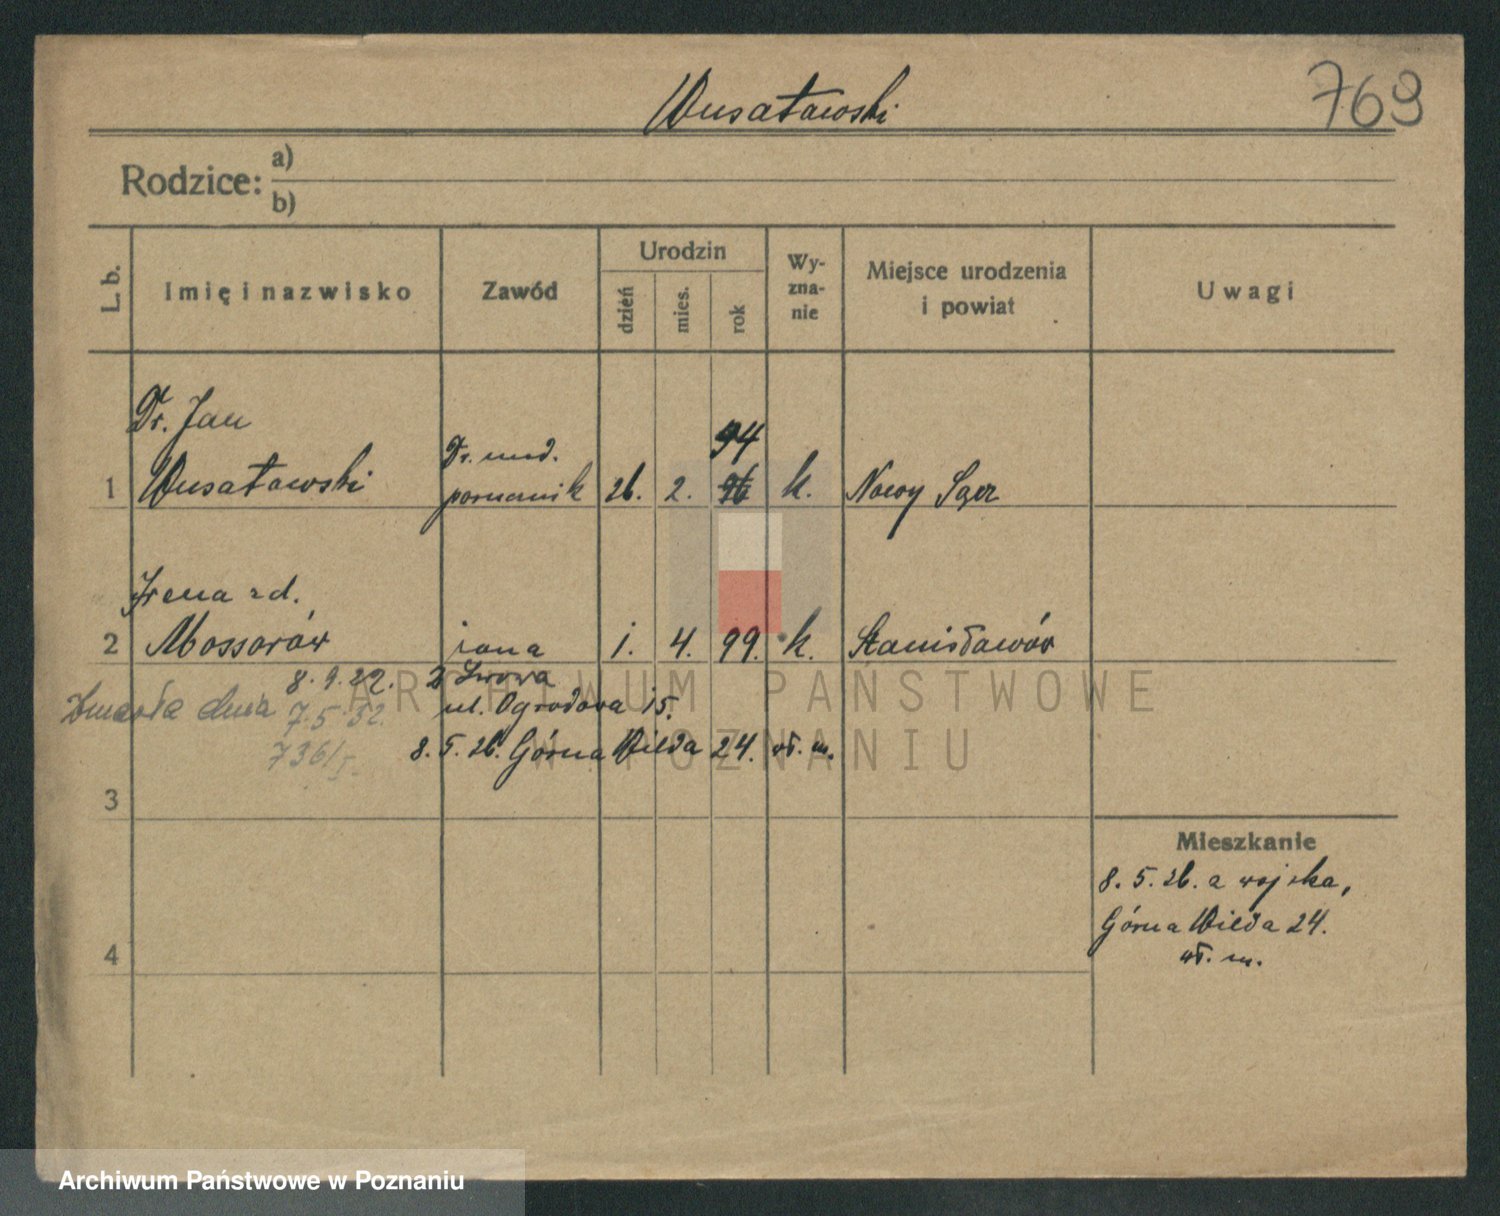 Wusatowski
769
Rodzice: a)
b)
L. b.
Imię i nazwisko
Zawód
Urodzin
dzień
mies.
rok
Wy-
zna-
nie
Miejsce urodzenia
i powiat
Uwagi
Dr. Jan
94
Dr. med.
1 Wusatowski 26. 2. 96 k. Nowy Sącz
Irena zd.
2 Mossorów żona 1. 4. 99. k. Stanisławów
8.9.22. Z Lwowa
Zmarła dnia 7.5.32. ul. Ogrodowa 15.
736/I. 8.5.26. Górna Wilda 24. wł. m.
3
Mieszkanie
8.5.26. z wojska,
Górna Wilda 24.
wł. m.
4
ARCHIWUM PAŃSTWOWE
W POZNANIU
Archiwum Państwowe w Poznaniu